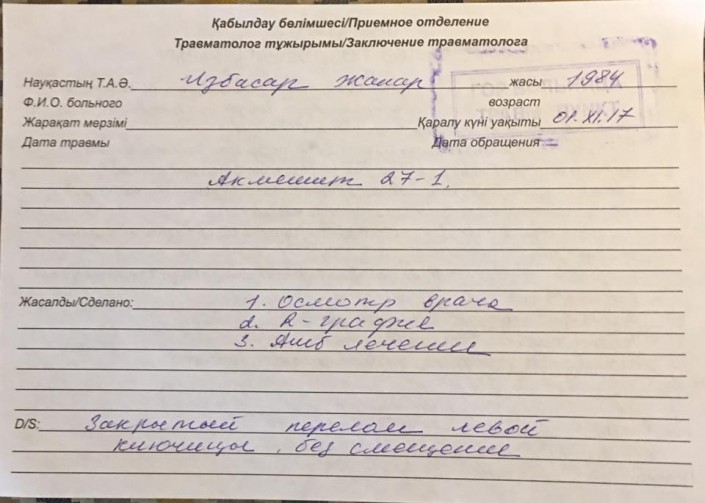 Қабылдау бөлімшесі/Приемное отделение
Травматолог тұжырымы/Заключение травматолога
Науқастың Т.А.Ә. Избасар Жанар жасы 1984
Ф.И.О. больного возраст
Жарақат мерзімі Қаралу күні уақыты 01.XI.17
Дата травмы Дата обращения
Акмешит 27-1.
Жасалды/Сделано: 1. Осмотр врача
2. R-графие
3. Амб лечении
D/S: Закрытый перелом левой
ключицы, без смещение